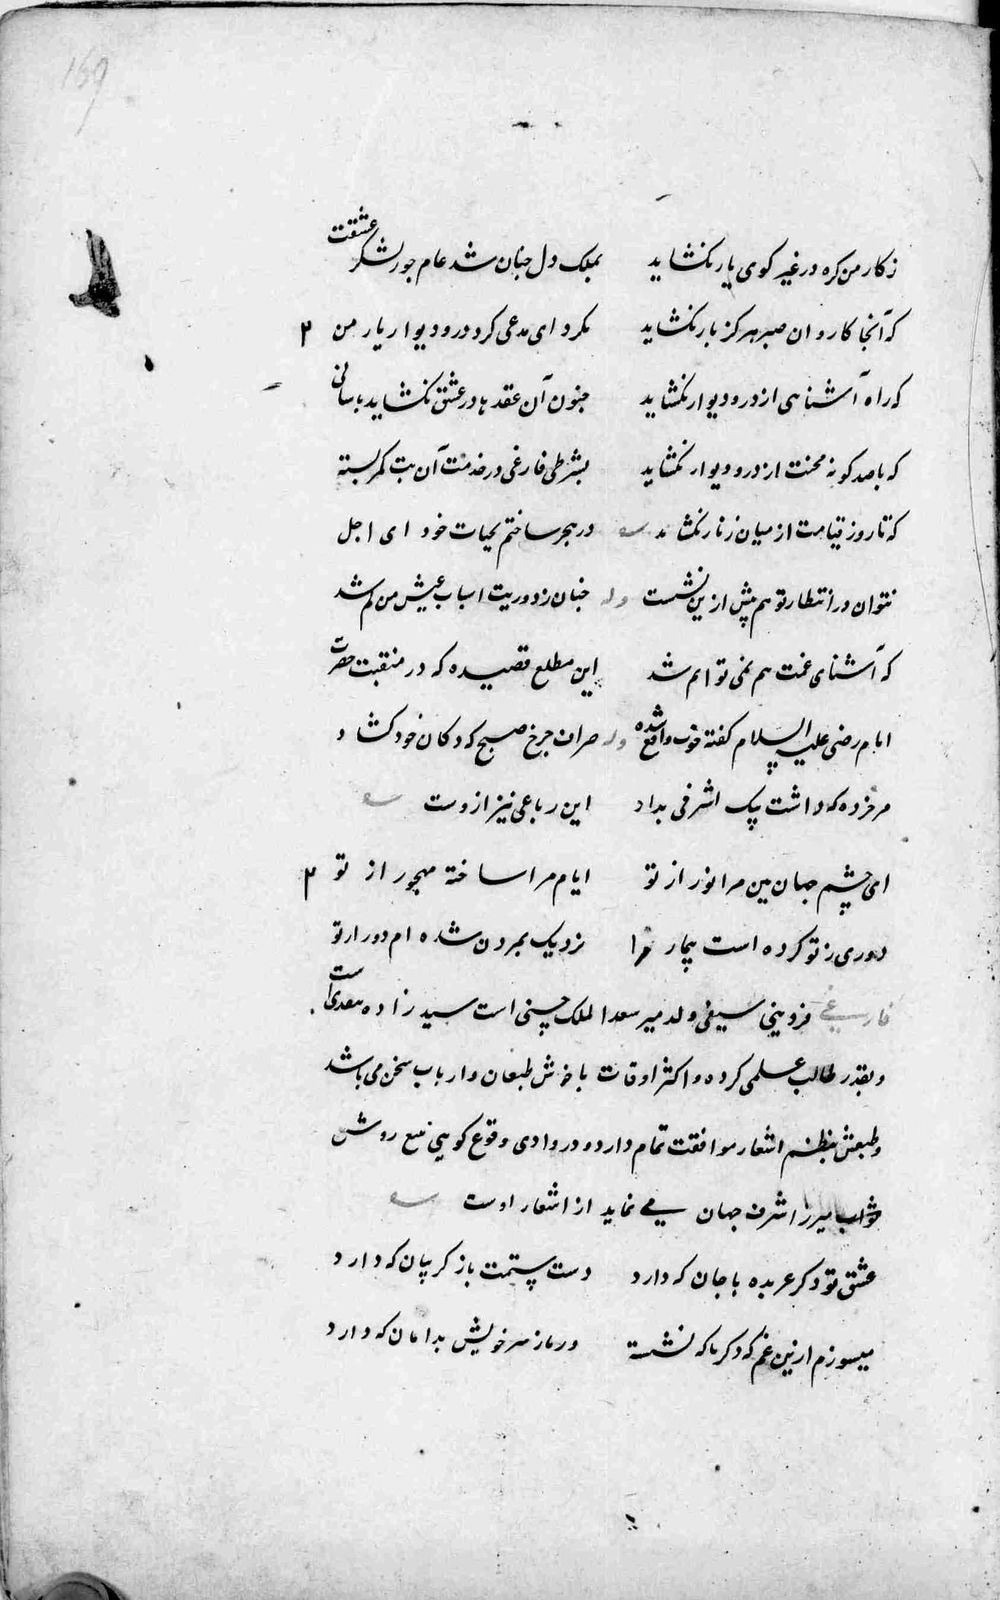 169
زکار من کره در غیر کوی یار نکشاید بملک دل چنان شد عام جور لشکر عشقت
که آنجا کاروان صبر هرکز بار نکشاید مکرد ای مدعی کرد در و دیوار یار من ۲
که راه آشناهی از در و دیوار نکشاید جنون آن عقدها در عشق نکشاید باسانی
که باصد کونه محنت از در و دیوار نکشاید بشرطی فارغی در خدمت آن بت کمر بسته
که تا روز قیامت از میان زنار نکشاید در هجر ساختم بحیات خود ای اجل
نتوان در انتظار تو هم پیش ازین نشست وله چنان ز دوریت اسباب عیش من کم شد
که آشنای غمت هم نمی تواهم شد این مطلع قصیده که در منقبت حضرت
امام رضی علیه السلام کفته خوب واقع شده وله صراف چرخ صبح که دکان خود کشاد
مر خرده که داشت بیک اشرفی بداد این رباعی نیز ازوست
ای چشم جهان بین مرا نور از تو ایام مرا ساخته مهجور از تو ۲
دوری ز تو کرده است بیمار مرا نزدیک بمردن شده ام دور از تو
فارغی قزوینی سیفی ولد میر سعد الملک حسنی است سید زاده سعدی است
و بقدر طالب علمی کرده و اکثر اوقات با خوش طبعان و ارباب سخن می باشد
و طبعش بنظم اشعار موافقت تمام دارد و در وادی وقوع کویی تتبع روش
نواب میرزا شرف جهان می نماید از اشعار اوست
عشق تو دکر عربده با جان که دارد دست ستمت باز کریبان که دارد
میسوزم ازین غم که دکر تا که نشسته در ناز سر خویش بدامان که دارد